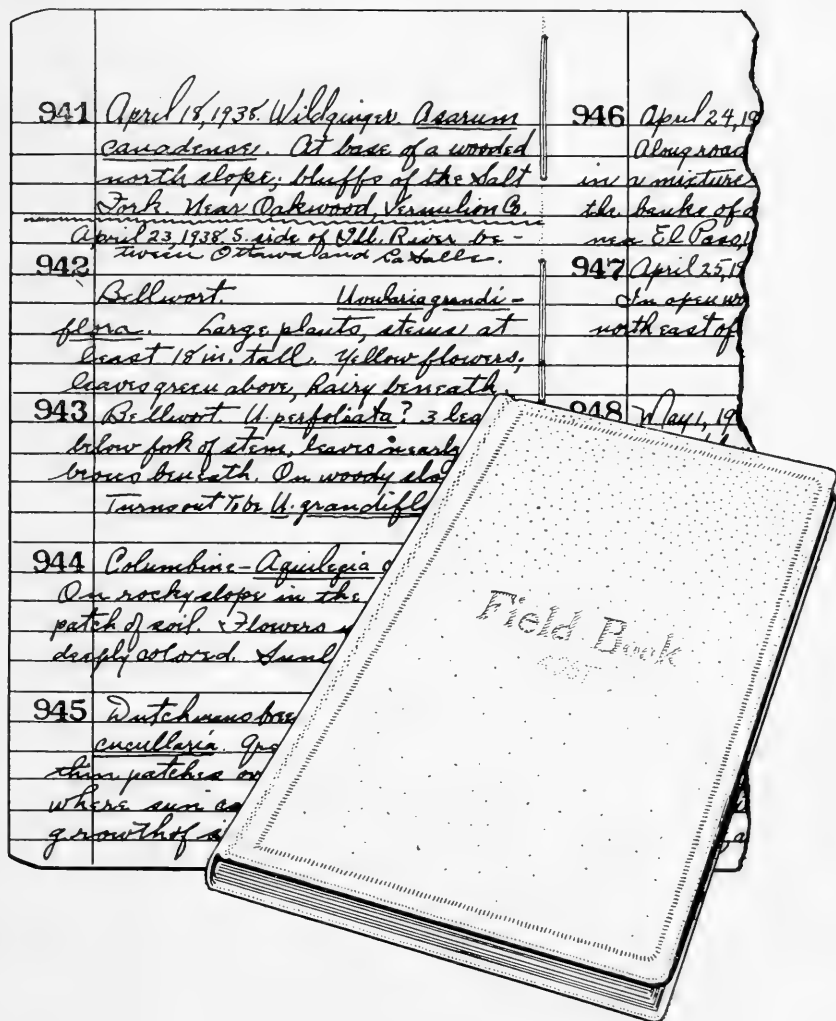 941 April 18, 1938. Wildginger. Asarum
canadense. At base of a wooded
north slope; bluffs of the Salt
Fork. Near Oakwood, Vermilion Co.
April 23, 1938. S. side of Ill. River be-
tween Ottawa and LaSalle.
942
Bellwort. Uvularia grandi-
flora. Large plants, stems at
least 18 in. tall. Yellow flowers;
leaves green above, hairy beneath.
943 Bellwort. U. perfoliata? 3 lea
below fork of stem, leaves nearly
brous beneath. On woody slo
Turns out to be U. grandifl
944 Columbine - Aquilegia c
On rocky slope in the
patch of soil. Flowers
deeply colored. Sunl
945 Dutchmans bree
cucullaria. Gro
thin patches ov
where sun ca
growth of s
946 April 24, 19
Along road
in a mixture
the banks of
near El Paso,
947 April 25, 19
In open wo
northeast of
948 May 1, 19
Field Book